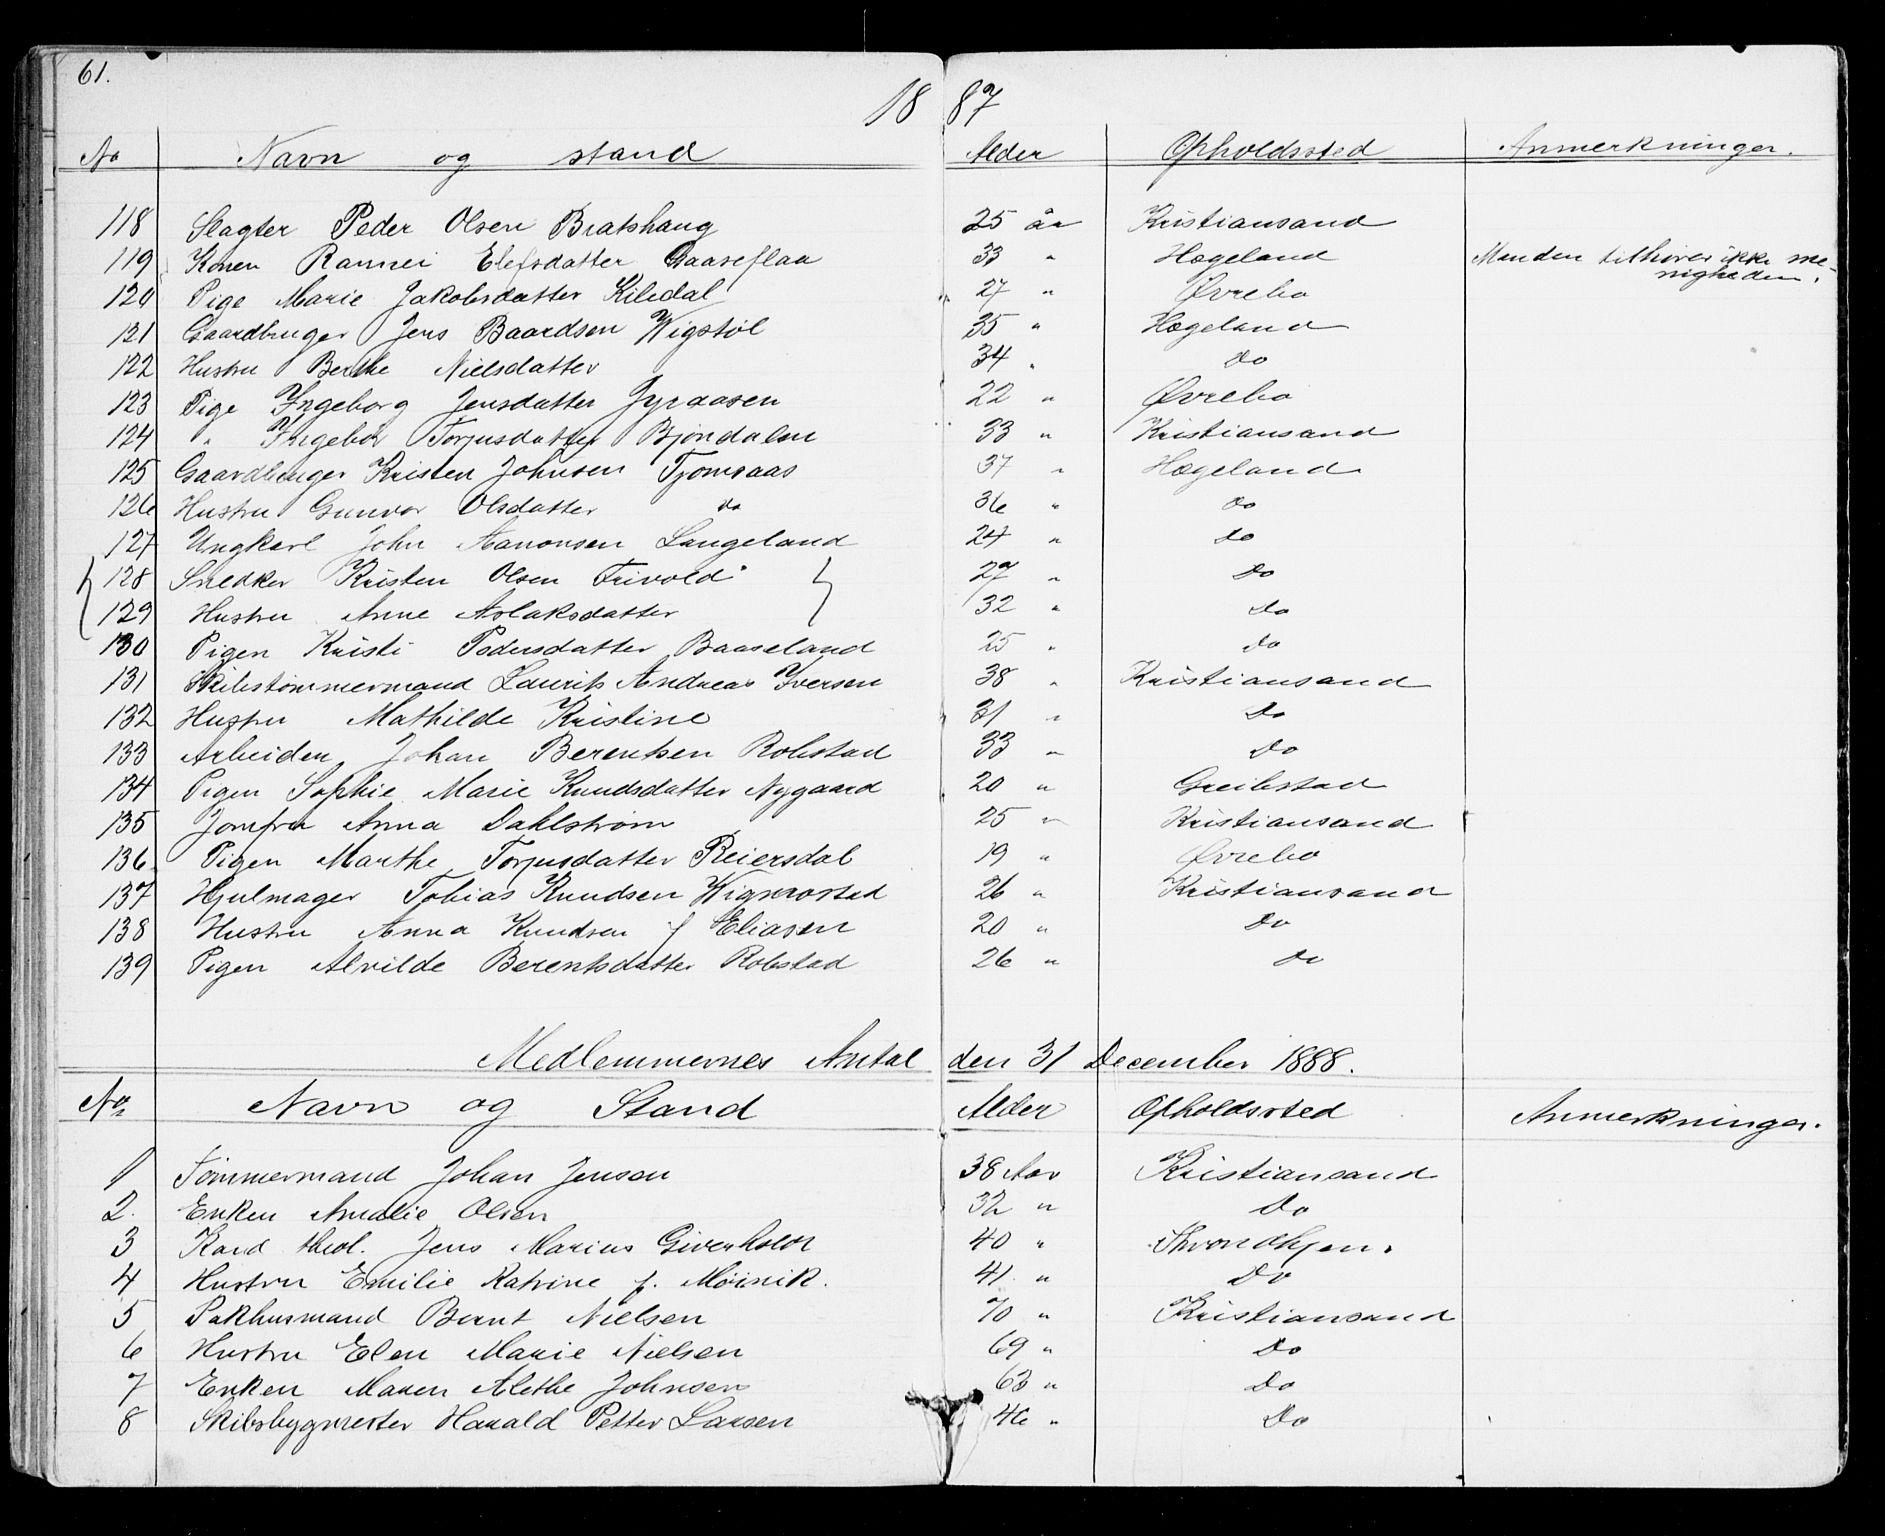 61.
18 87
No Navn og stand Alder Opholdssted Anmerkninger.
118 Slagter Peder Olsen Bratshaug 25 år Kristiansand
119 Konen Rannei Elefsdatter Gaaseflaa 33 " Hægeland Manden tilhører ikke me-
nigheden.
120 Pige Marie Jakobsdatter Kiledal 27 " Øvrebo
121 Gaardbruger Jens Baardsen Wigstøl 35 " Hægeland
122 Hustru Berthe Nielsdatter 34 " Do
123 Pige Ingeborg Jensdatter 22 " Øvrebo
124 " Ingebor Torjusdatter Bjøndalen 33 " Kristiansand
125 Gaardbruger Kristen Johnsen Tjomsaas 37 " Hægeland
126 Hustru Gunvor Olsdatter do 36 " do
127 Ungkarl John Aanonsen Langeland 24 " do
128 Snedker Kristen Olsen Frivold 27 " Do
129 Hustru Anne Aslaksdatter 32 " Do
130 Pigen Kristi Pedersdatter Baaseland 25 " do
131 Skibstømmermand Laurits Andreas Iversen 38 " Kristiansand
132 Hustru Mathilde Kristine 31 " Do
133 Arbeiden Johan Berentsen Robstad 33 " Do
134 Pigen Sophie Marie Knudsdatter Nygaard 20 " Greibstad
135 Jomfru Anna Dahlstrøm 25 " Kristiansand
136 Pigen Marthe Torjusdatter Reiersdal 19 " Øvrebo
137 Hjulmager Tobias Knudsen 26 " Kristiansand
138 Hustru Anna Knudsen f Eliasen 20 " Do
139 Pigen Alvilde Berentsdatter Robstad 26 " do
Medlemmernes Antal den 31 December 1888.
No Navn og Stand Alder Opholdssted Anmerkninger.
1 Tømmermand Johan Jensen 38 Aar Kristiansand
2. Enken Amalie Olsen 32 " Do
3 Kand theol. Jens Marius Giverholdt 40 " Throndhjem.
4 Hustru Emilie Katrine f. Møinik. 41. " Do
5 Pakhusmand Bernt Nielsen 70 " Kristiansand
6 Hustru Elen Marie Nielsen 69 " Do
7 Enken Maren Alethe Johnsen 63 " Do
8 Skibsbygmester Harald Petter Larsen 46 " Do